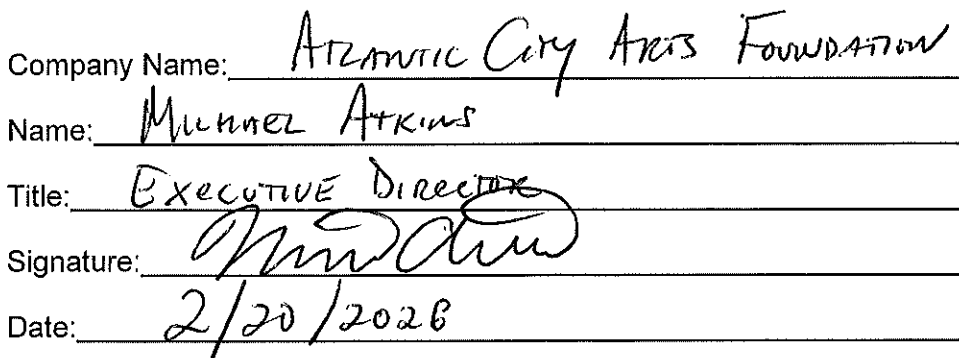 Company Name: Atlantic City Arts Foundation
Name: Michael Atkins
Title: Executive Director
Signature:
Date: 2/20/2026